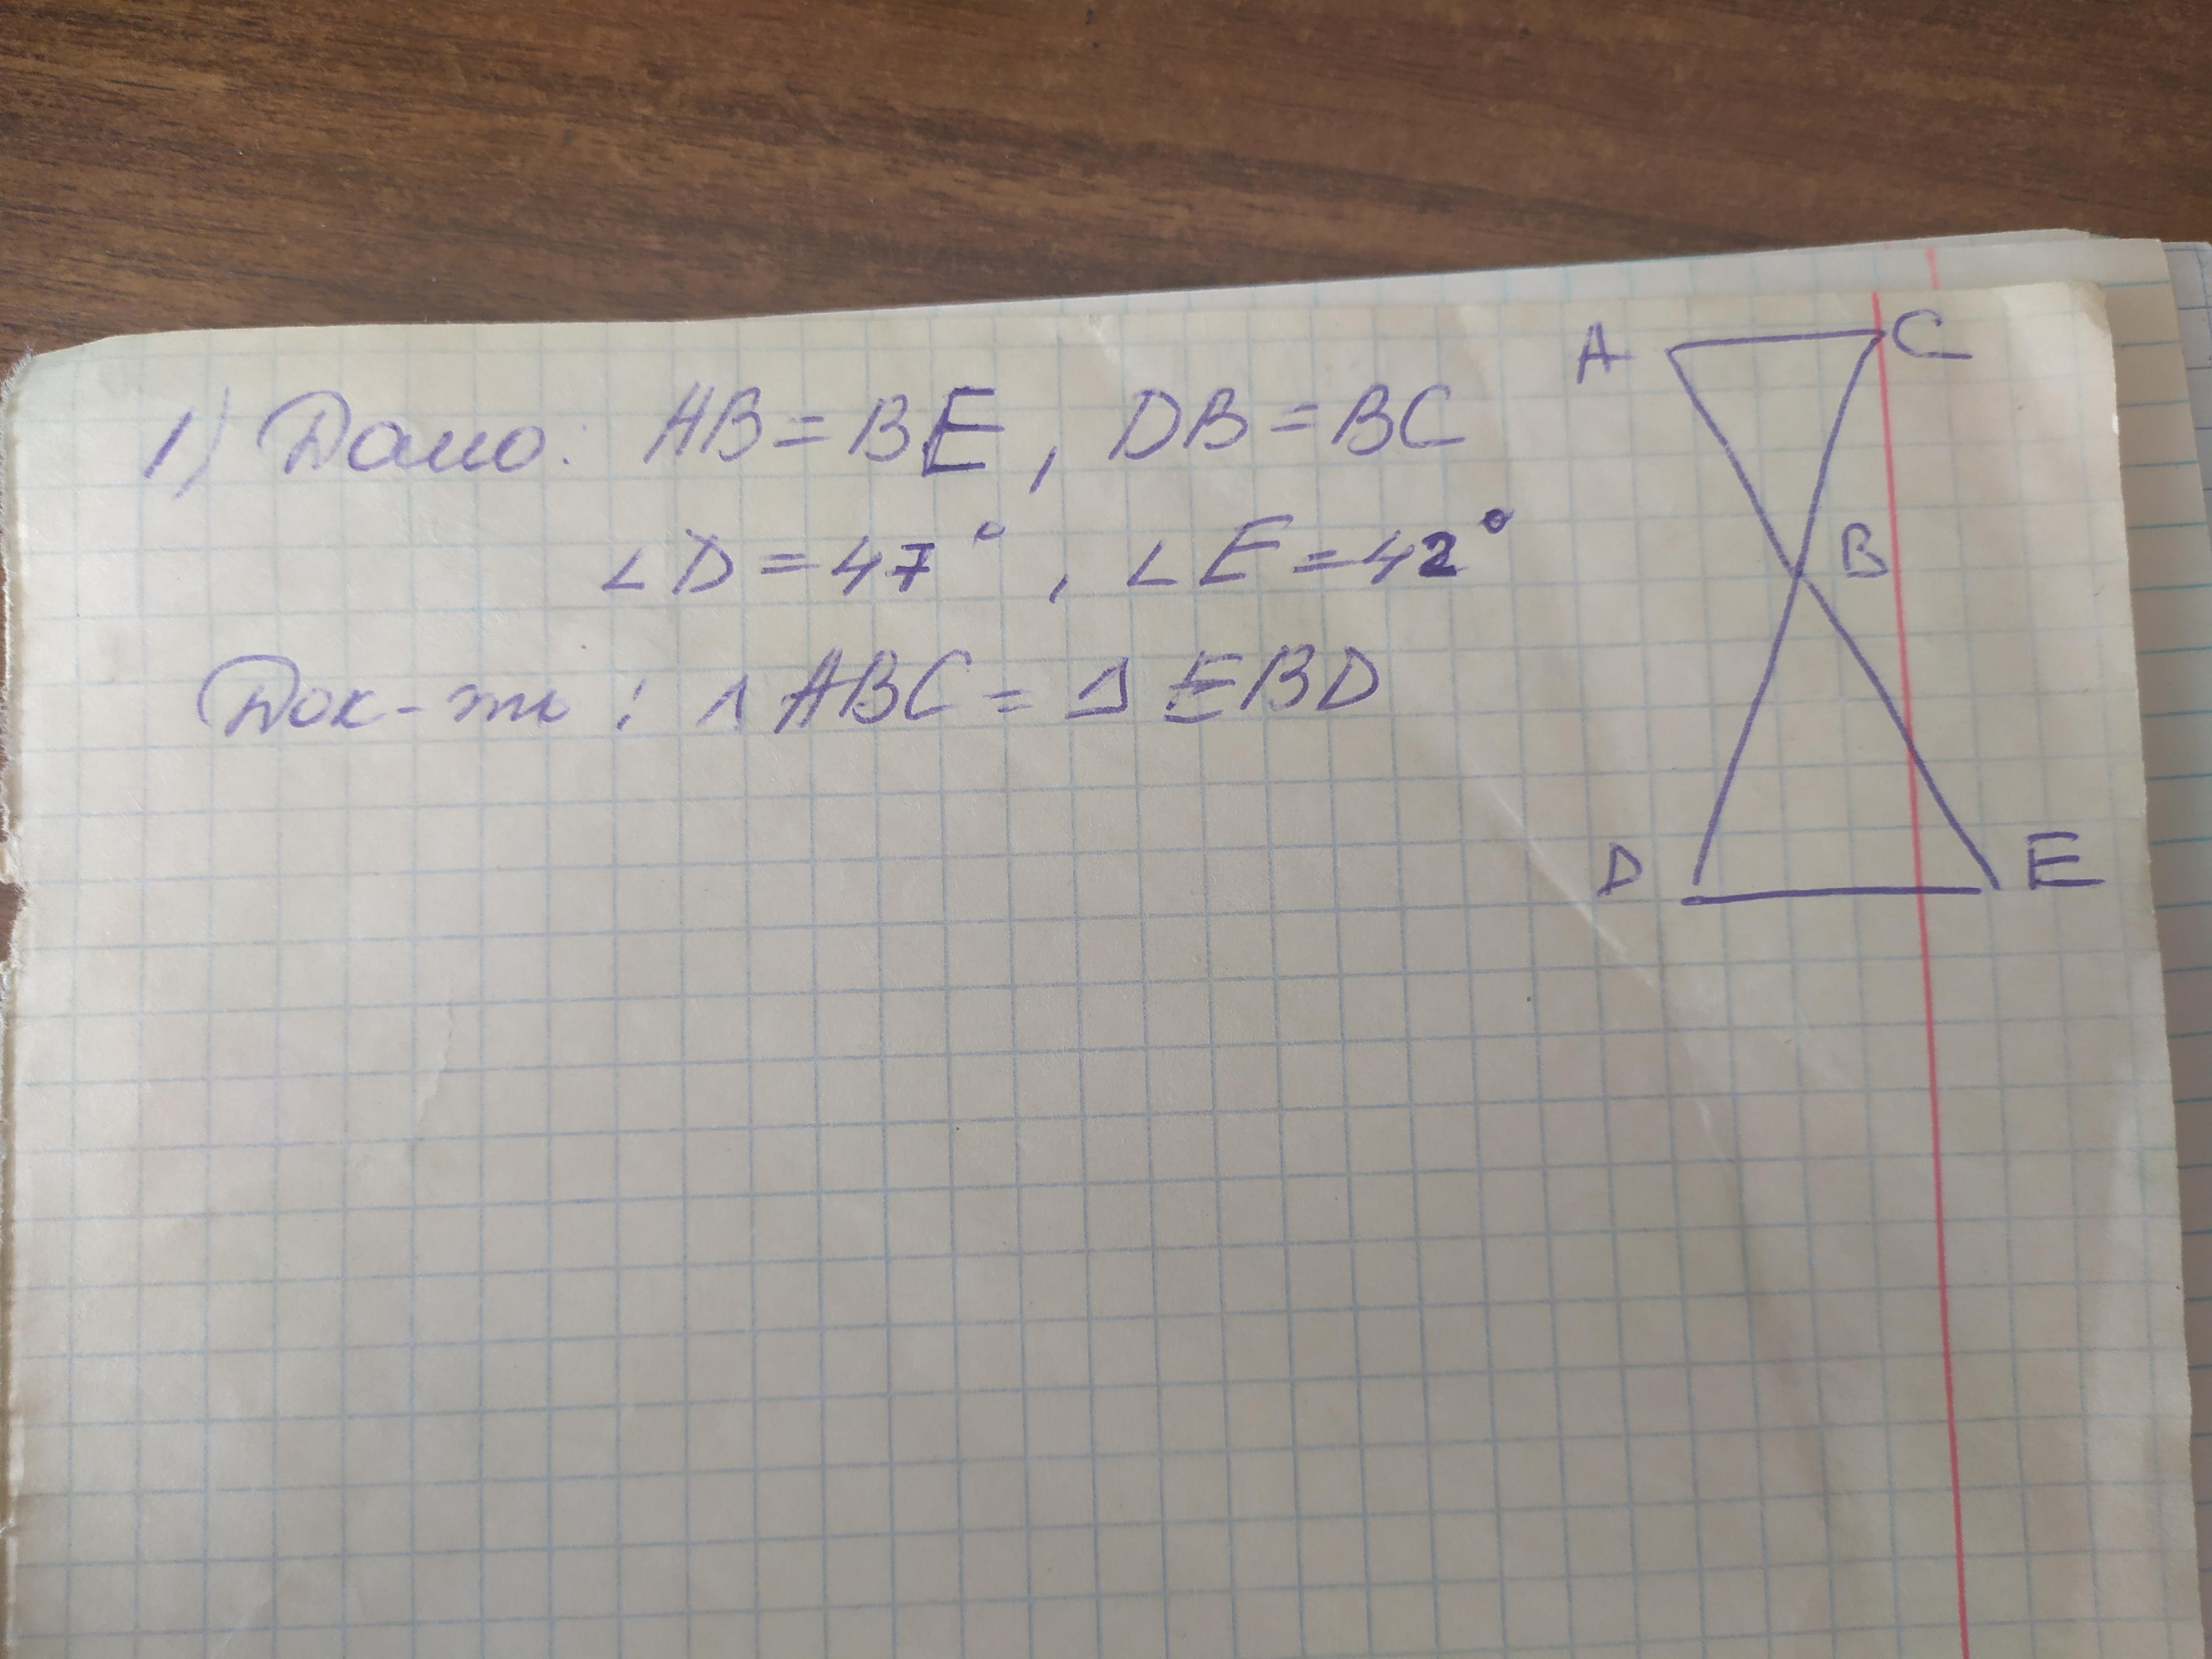 1) Дано: AB = BE, DB = BC
∠D = 47°, ∠E = 42°
Док-ть: △ABC = △EBD
A C
B
D E